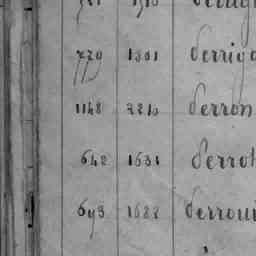 779 1301 Derrig
1148 2210 Derron
642 1631 Derrot
693 1622 Derroui